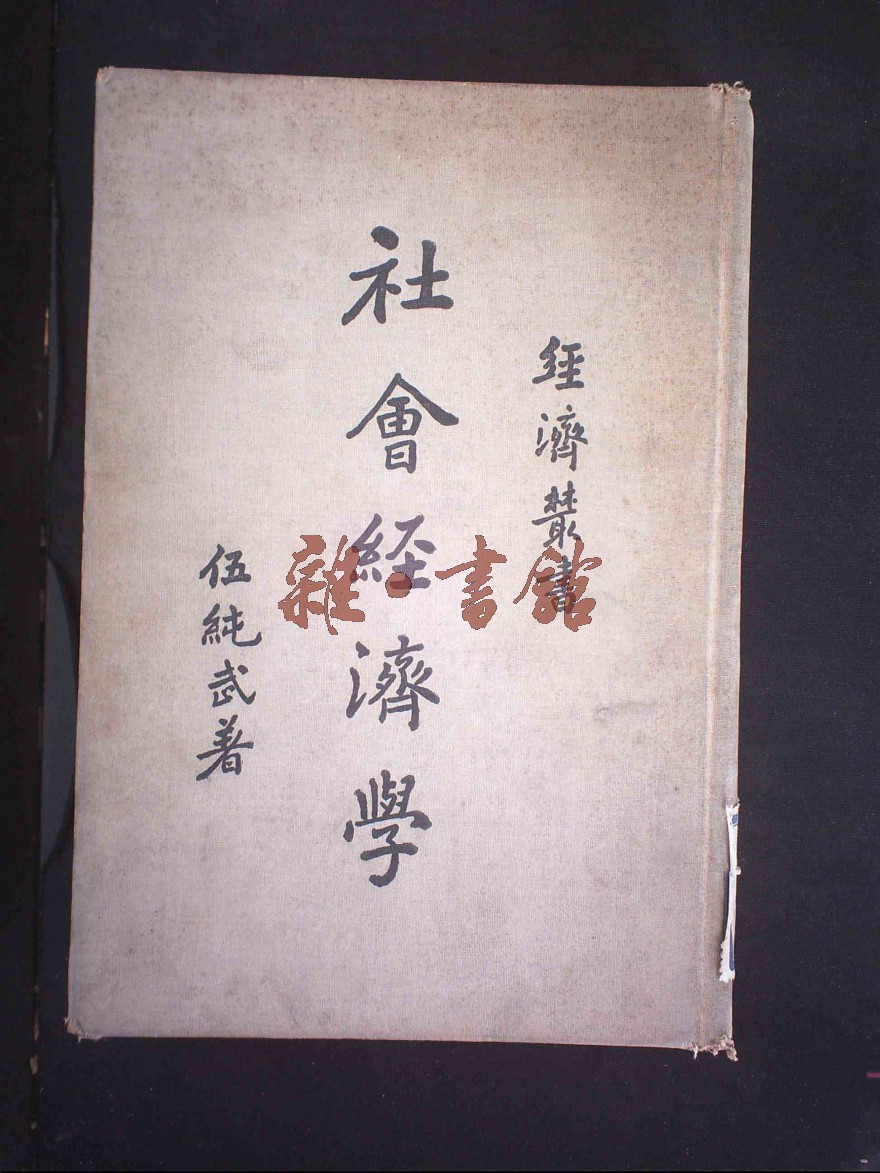 經濟叢書
社會經濟學
伍純武著
雜·書館